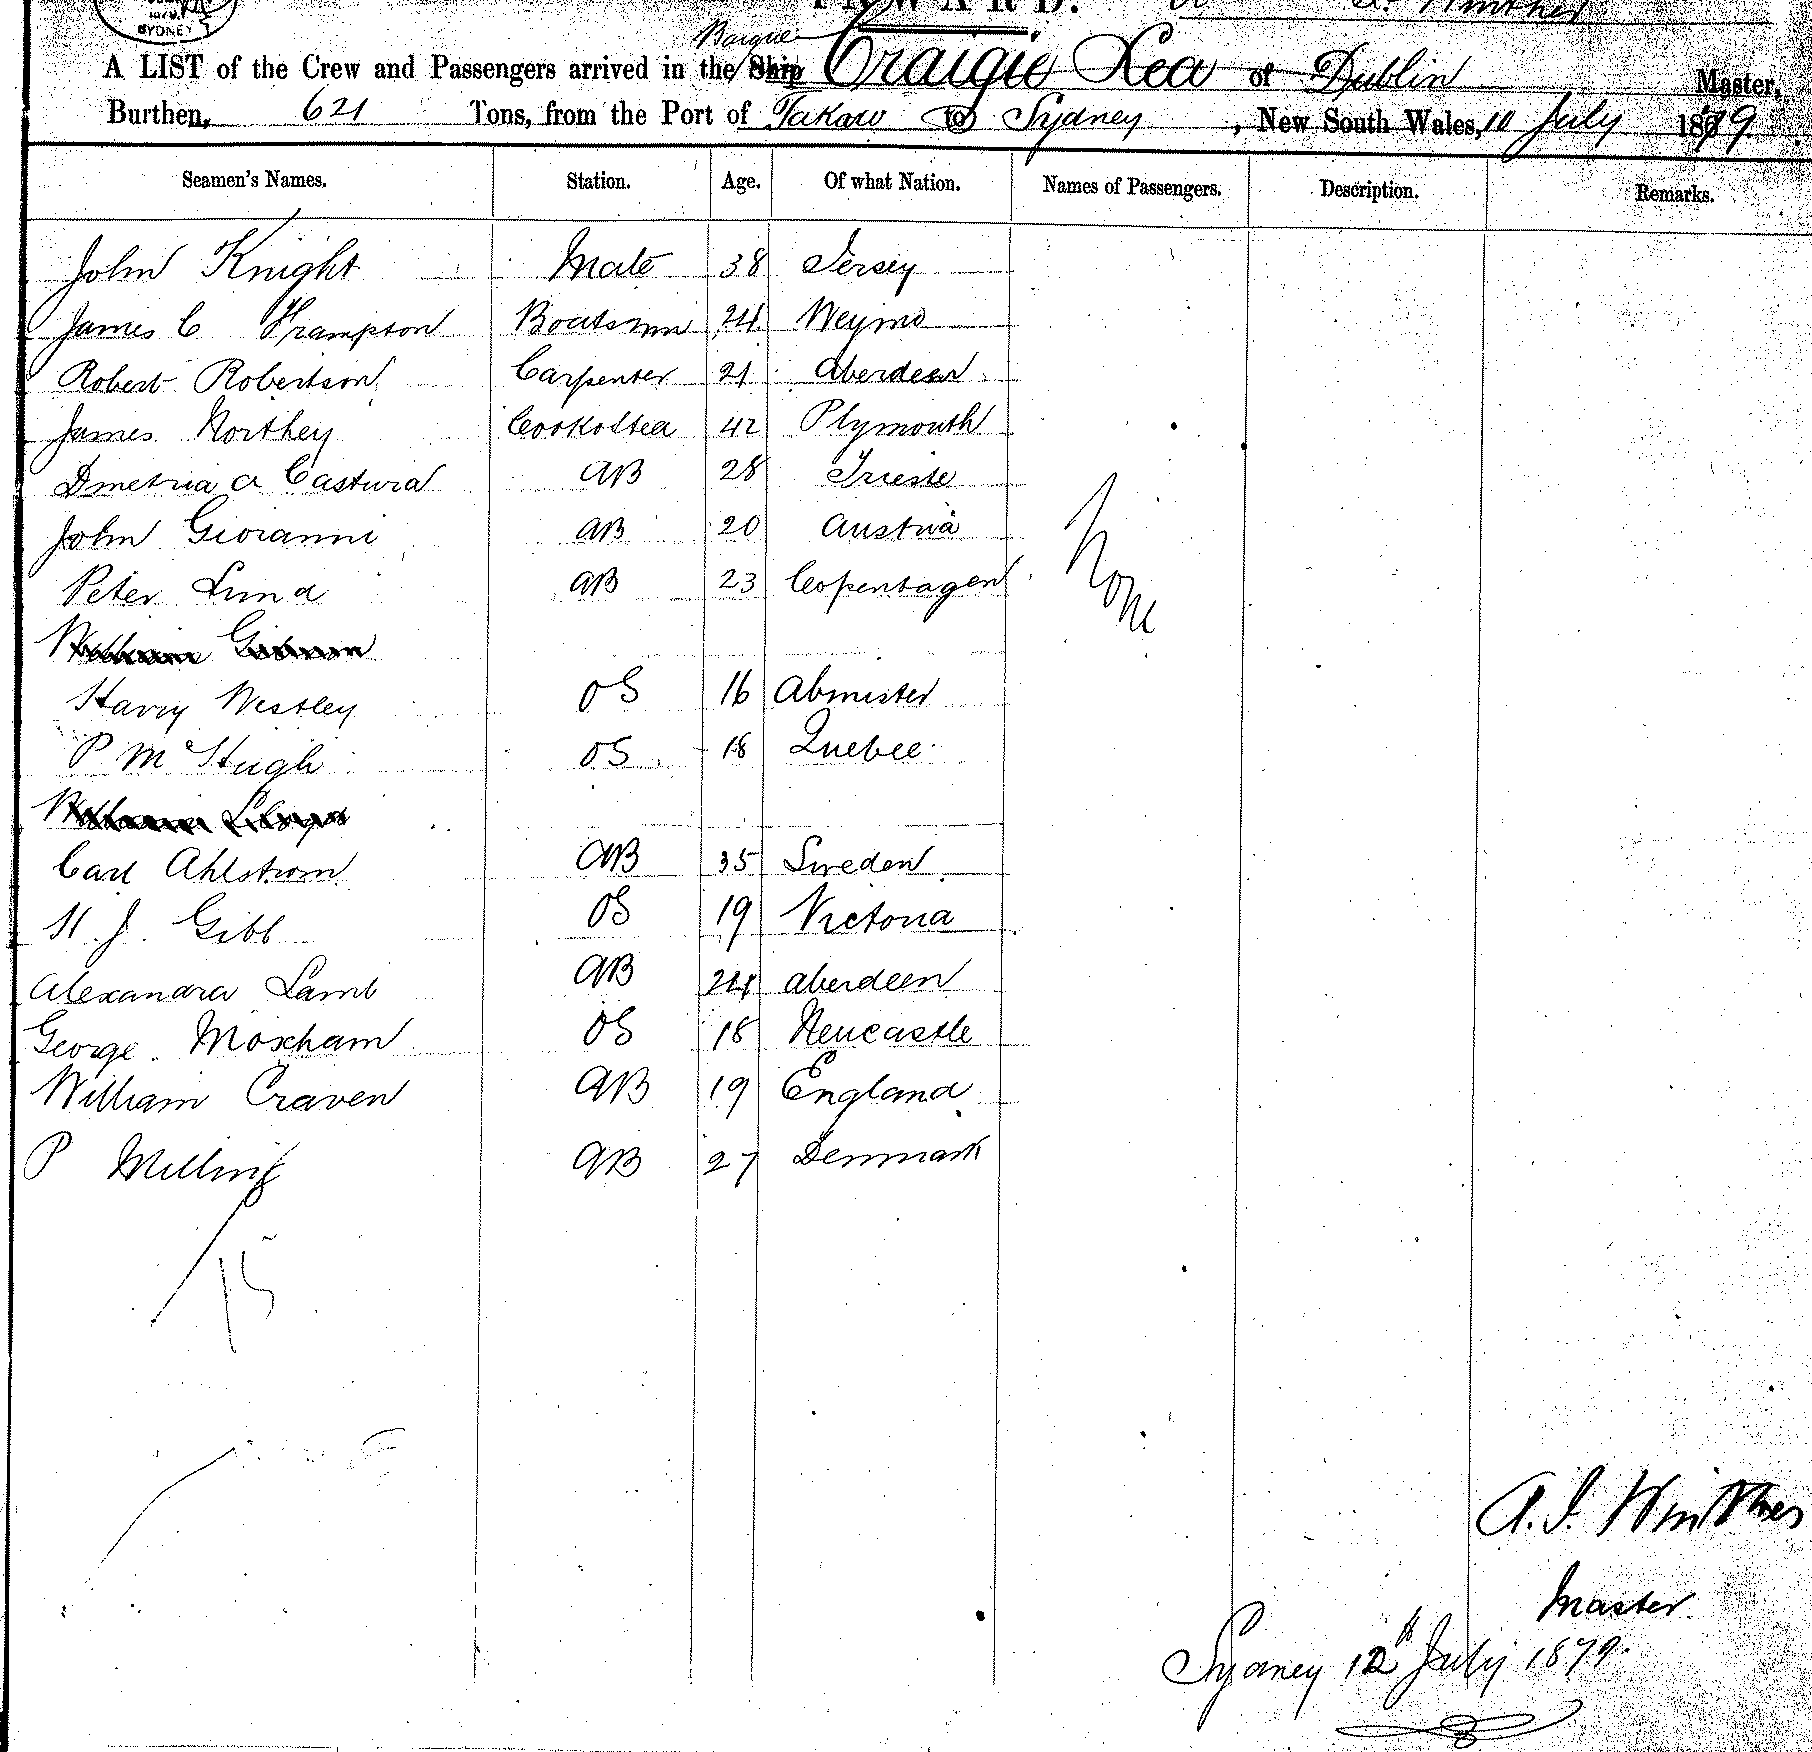 SYDNEY
Barque
A LIST of the Crew and Passengers arrived in the Ship Craigie Lea of Dublin Master,
Burthen, 621 Tons, from the Port of Takaw to Sydney, New South Wales, 10 July 1879
Seamen's Names. Station. Age. Of what Nation. Names of Passengers. Description. Remarks.
John Knight Mate 38 Jersey
James C Frampson Boatsmn 24 Weymo
Robert Robertson Carpenter 21 Aberdeen
James Northey Cook & Stea 42 Plymouth
Dmetria a Castura AB 28 Trieste
John Giovanni AB 20 Austria
Peter Lund AB 23 Copenhagen
None
William
Harry Westley OS 16 Abmister
P McHugh OS 18 Quebec
William Lloyd
Carl Ahlstrom AB 35 Sweden
H. J. Gibb OS 19 Victoria
Alexandra Lamb AB 24 Aberdeen
George Moxham OS 18 Newcastle
William Craven AB 19 England
P Milling AB 27 Denmark
15
A. J. Winther
Master
Sydney 12th July 1879.